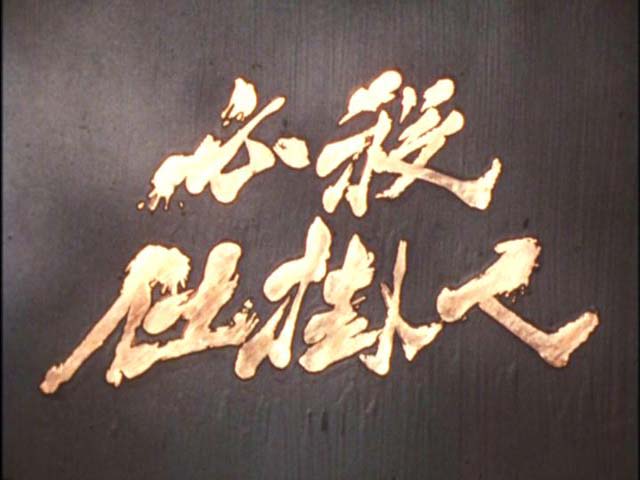 必殺
仕掛人